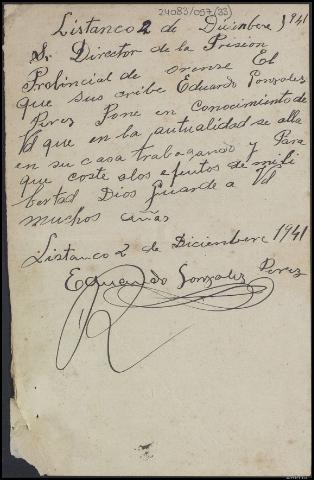 24083/057(33)
Listanco 2 de Diciembre 1941
Sr Director de la Prision
Provincial de orense El
que sus cribe Eduardo Gonzalez
Perez Pone en Conocimiento de
Vd que en la autualidad se alla
en su casa trabagando y Para
que coste alos efeutos de mi li
bertad Dios Guarde a Vd
muchos años
Listanco 2 de Diciembere 1941
Eduardo Gonzalez Perez